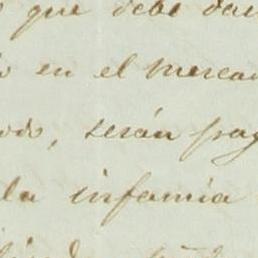 que debe dar
en el mercan
odo, serán pag
la infamia